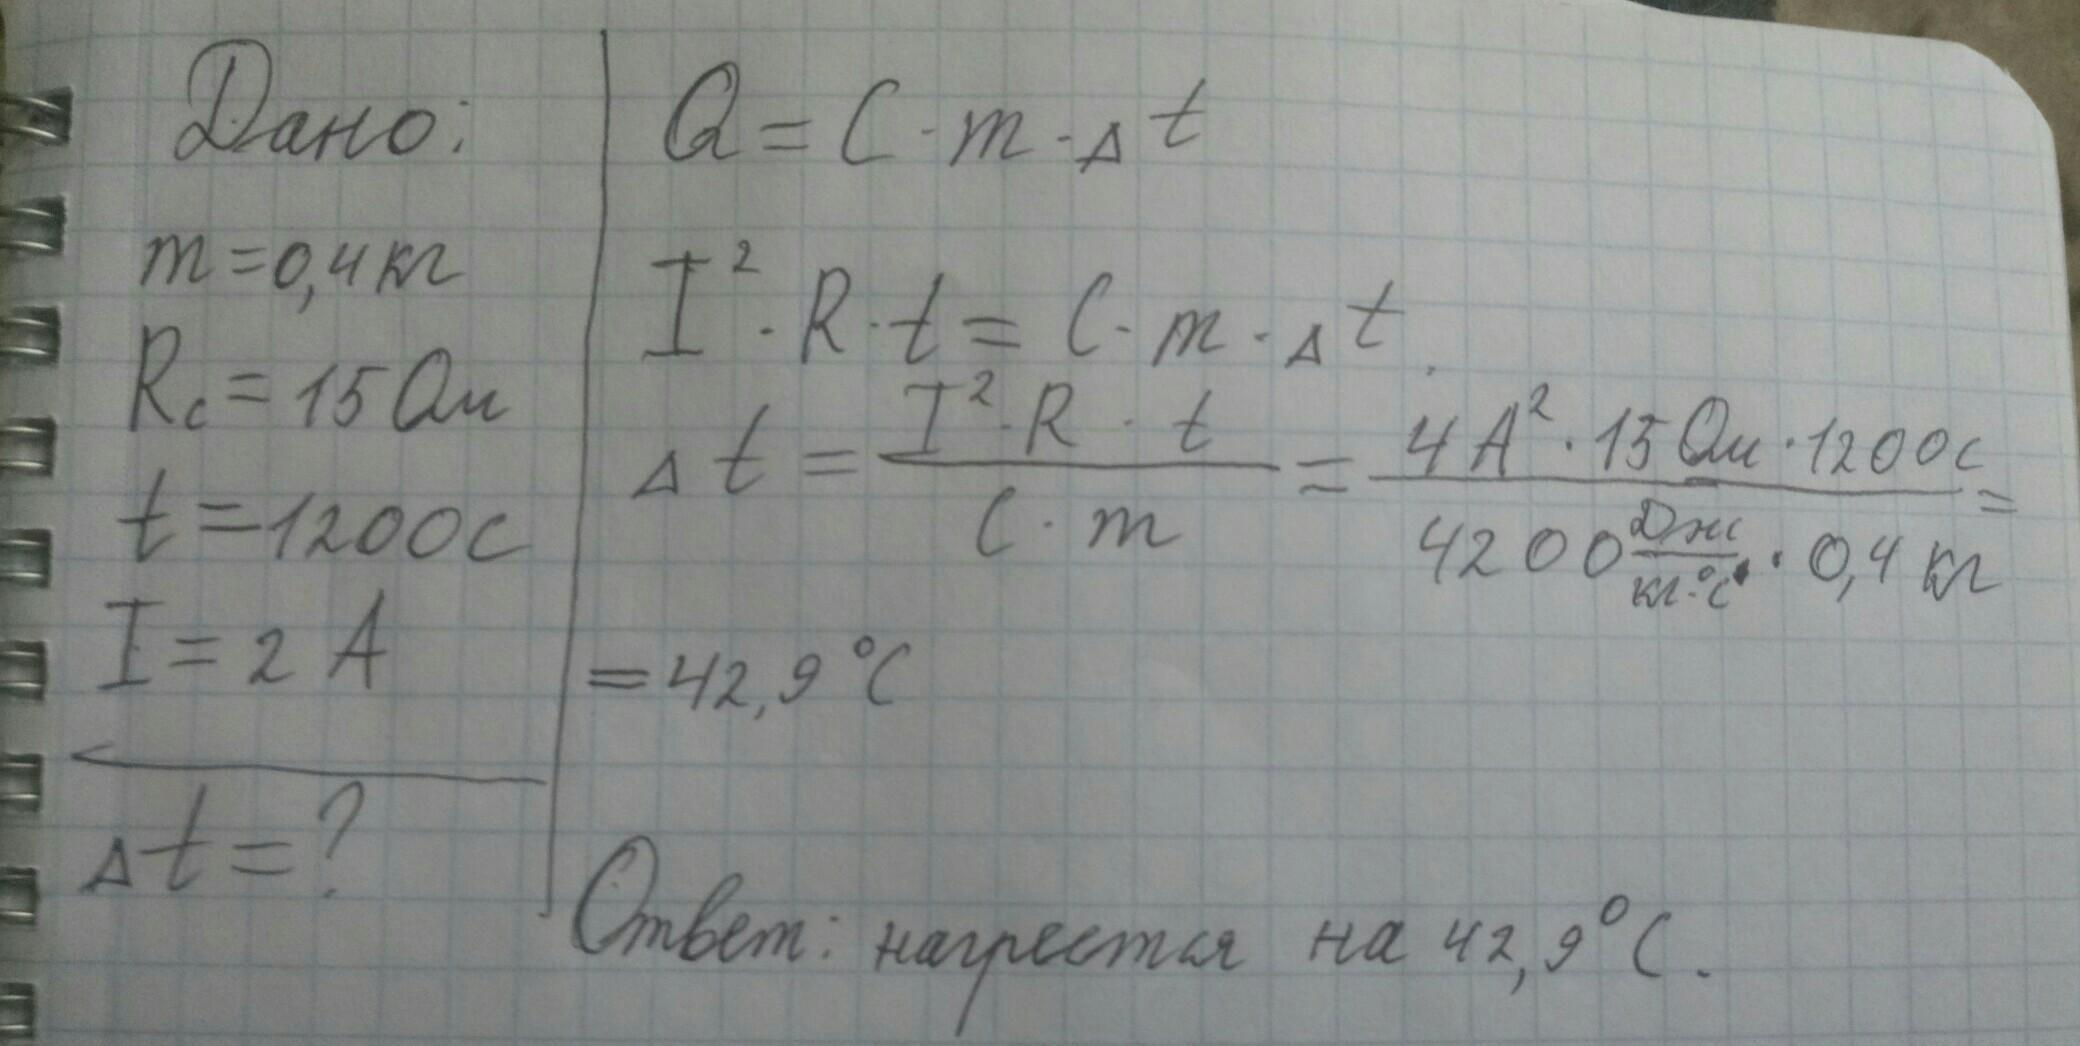 Дано:
m=0,4кг
Rс=15Ом
t=1200с
I=2А
Δt=?
Q=C·m·Δt
I²·R·t=C·m·Δt.
Δt=(I²·R·t)/(C·m)=(4А²·15Ом·1200с)/(4200Дж/(кг·°С)·0,4кг)=
=42,9°С
Ответ: нагреется на 42,9°С.